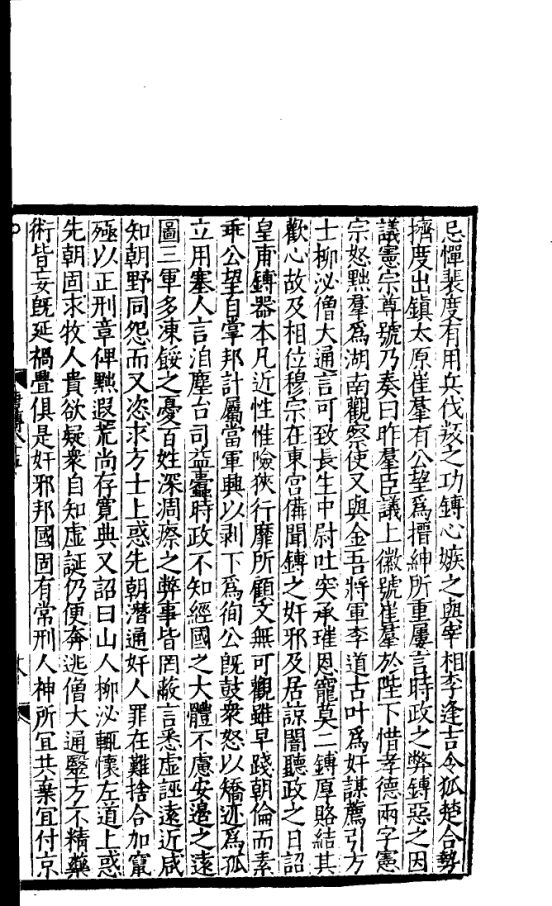 忌憚裴度有用兵伐叛之功鏄心嫉之與宰相李逢吉令狐楚合勢
擠度出鎮太原崔羣有公望爲搢紳所重屢言時政之弊鏄惡之因
議憲宗尊號乃奏曰昨羣臣議上徽號崔羣於陛下惜孝德兩字憲
宗怒黜羣爲湖南觀察使又與金吾將軍李道古叶爲奸謀薦引方
士柳泌僧大通言可致長生中尉吐突承璀恩寵莫二鏄厚賂結其
歡心故及相位穆宗在東宮備聞鏄之奸邪及居諒闇聽政之日詔
皇甫鏄器本凡近性惟險狹行靡所顧文無可觀雖早踐朝倫而素
乖公望自掌邦計屬當軍興以剥下爲徇公旣鼓衆怒以矯迹爲孤
立用塞人言洎塵台司益蠹時政不知經國之大體不慮安邊之遠
圖三軍多凍餒之憂百姓深凋瘵之弊事皆罔蔽言悉虛誣遠近咸
知朝野同怨而又恣求方士上惑先朝潛通奸人罪在難捨合加竄
殛以正刑章俾黜遐荒尚存寬典又詔曰山人柳泌輒懷左道上惑
先朝固求牧人貴欲疑衆自知虛誕仍便奔逃僧大通醫方不精藥
術皆妄旣延禍釁俱是奸邪邦國固有常刑人神所宜共棄宜付京